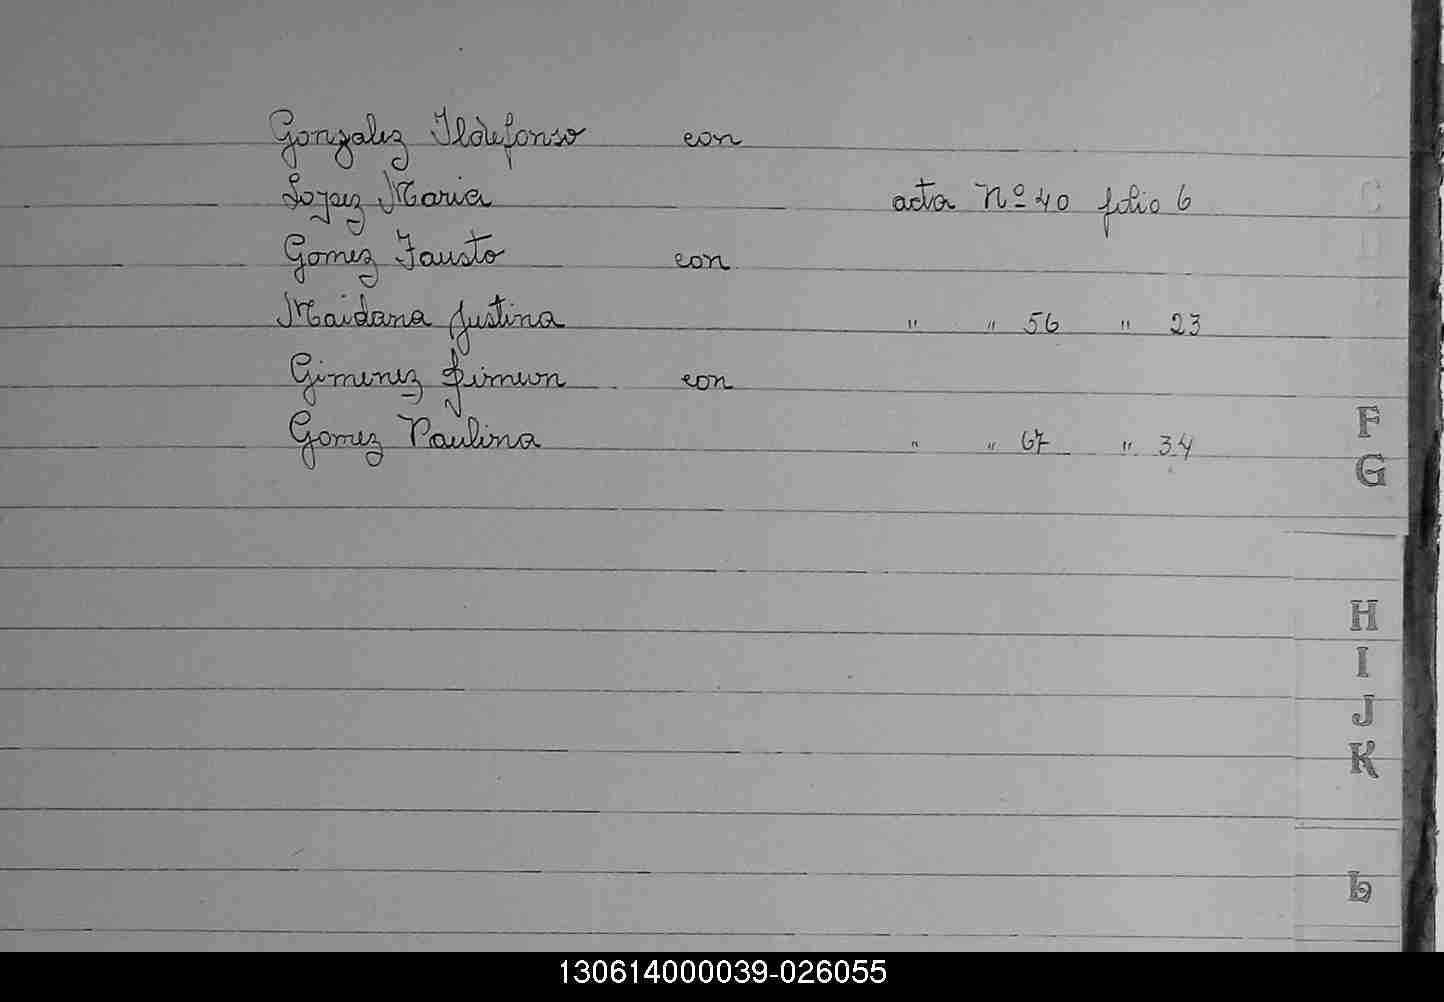 Gonzalez Ildefonso con
Lopez Maria acta Nº 40 folio 6
Gomez Fausto con
Maidana Justina " " 56 " 23
Gimenez Simeon con
Gomez Paulina " " 67 " 34
F
G
H
I
J
K
L
130614000039-026055